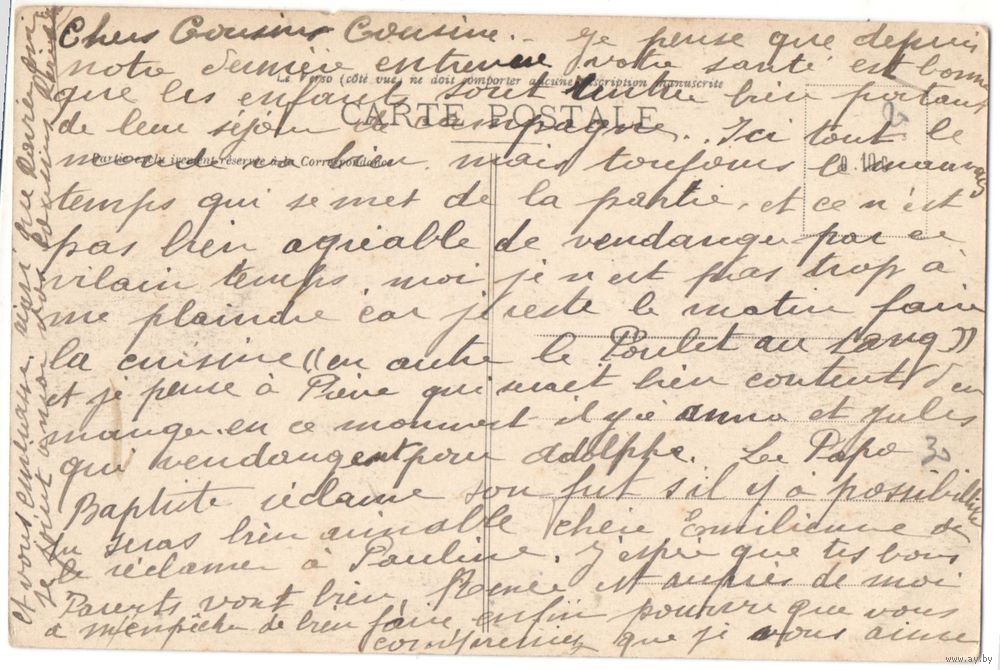 Chers Cousins Cousine. - Je pense que depuis
notre dernière entrevue votre santé est bonne
Le Verso (côté vue) ne doit comporter aucune inscription manuscrite
que les enfants sont bien portant
CARTE POSTALE
de leur séjour campagne. Ici tout le
monde va bien mais toujours le mauvais
Partie exclusivement réservée à la Correspondance
0.10c
temps qui se met de la partie. et ce n'est
pas bien agréable de vendanger par ce
vilain temps, moi je n'est pas trop à
me plaindre car je reste le matin faire
la cuisine ((en autre le Poulet au Sang))
et je pense à Pierre qui serait bien content d'en
manger. en ce moment il y a anna et Jules
30
qui vendangent pour adolphe. Le Papa
Baptiste réclame son fut s'il y a possibilité
tu seras bien aimable chère Emilienne de
le réclamer à Pauline. J'espère que tes bons
Parents vont bien. Renée est auprès de moi
a m'empêche de bien faire enfin pourvu que vous
compreniez que je vous aime
et vous embrasse ainsi que